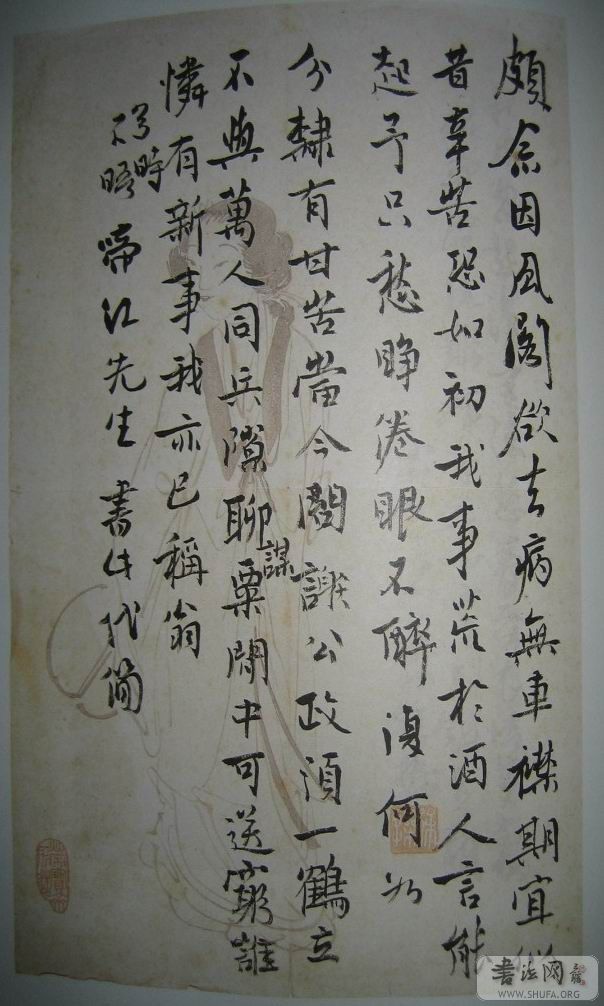 頗念因風閣欲去病無車襟期宜似
昔辛苦恐如初我事荒於酒人言能
起予只愁睜倦眼不醉復何如
分隸有甘苦當今謝公政須一鶴立
不與萬人同兵隙聊謀粟鬧中可送窮誰
憐有新事我亦已稱翁
時晤啼江先生書此代簡
書法网
WWW.SHUFA.ORG